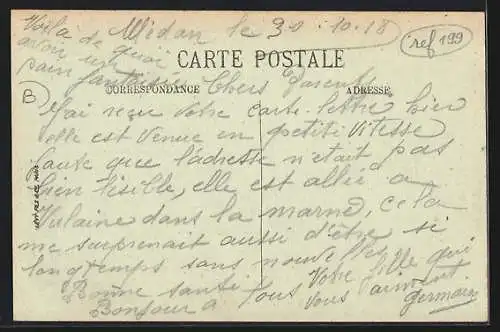 Voilà de quoi
avoir un
pain fantaisie
Médan le 30-10-18
ref 199
CARTE POSTALE
CORRESPONDANCE
ADRESSE
B
Chers Parents
J'ai reçu votre carte-lettre hier
elle est venue en petite vitesse
faute que l'adresse n'était pas
bien lisible, elle est allée a
Vulaine dans la marne, cela
me surprenait aussi d'être si
longtemps sans nouvelles
Bonne santé Votre fille qui
Bonjour a Tous vous aiment
Germaine